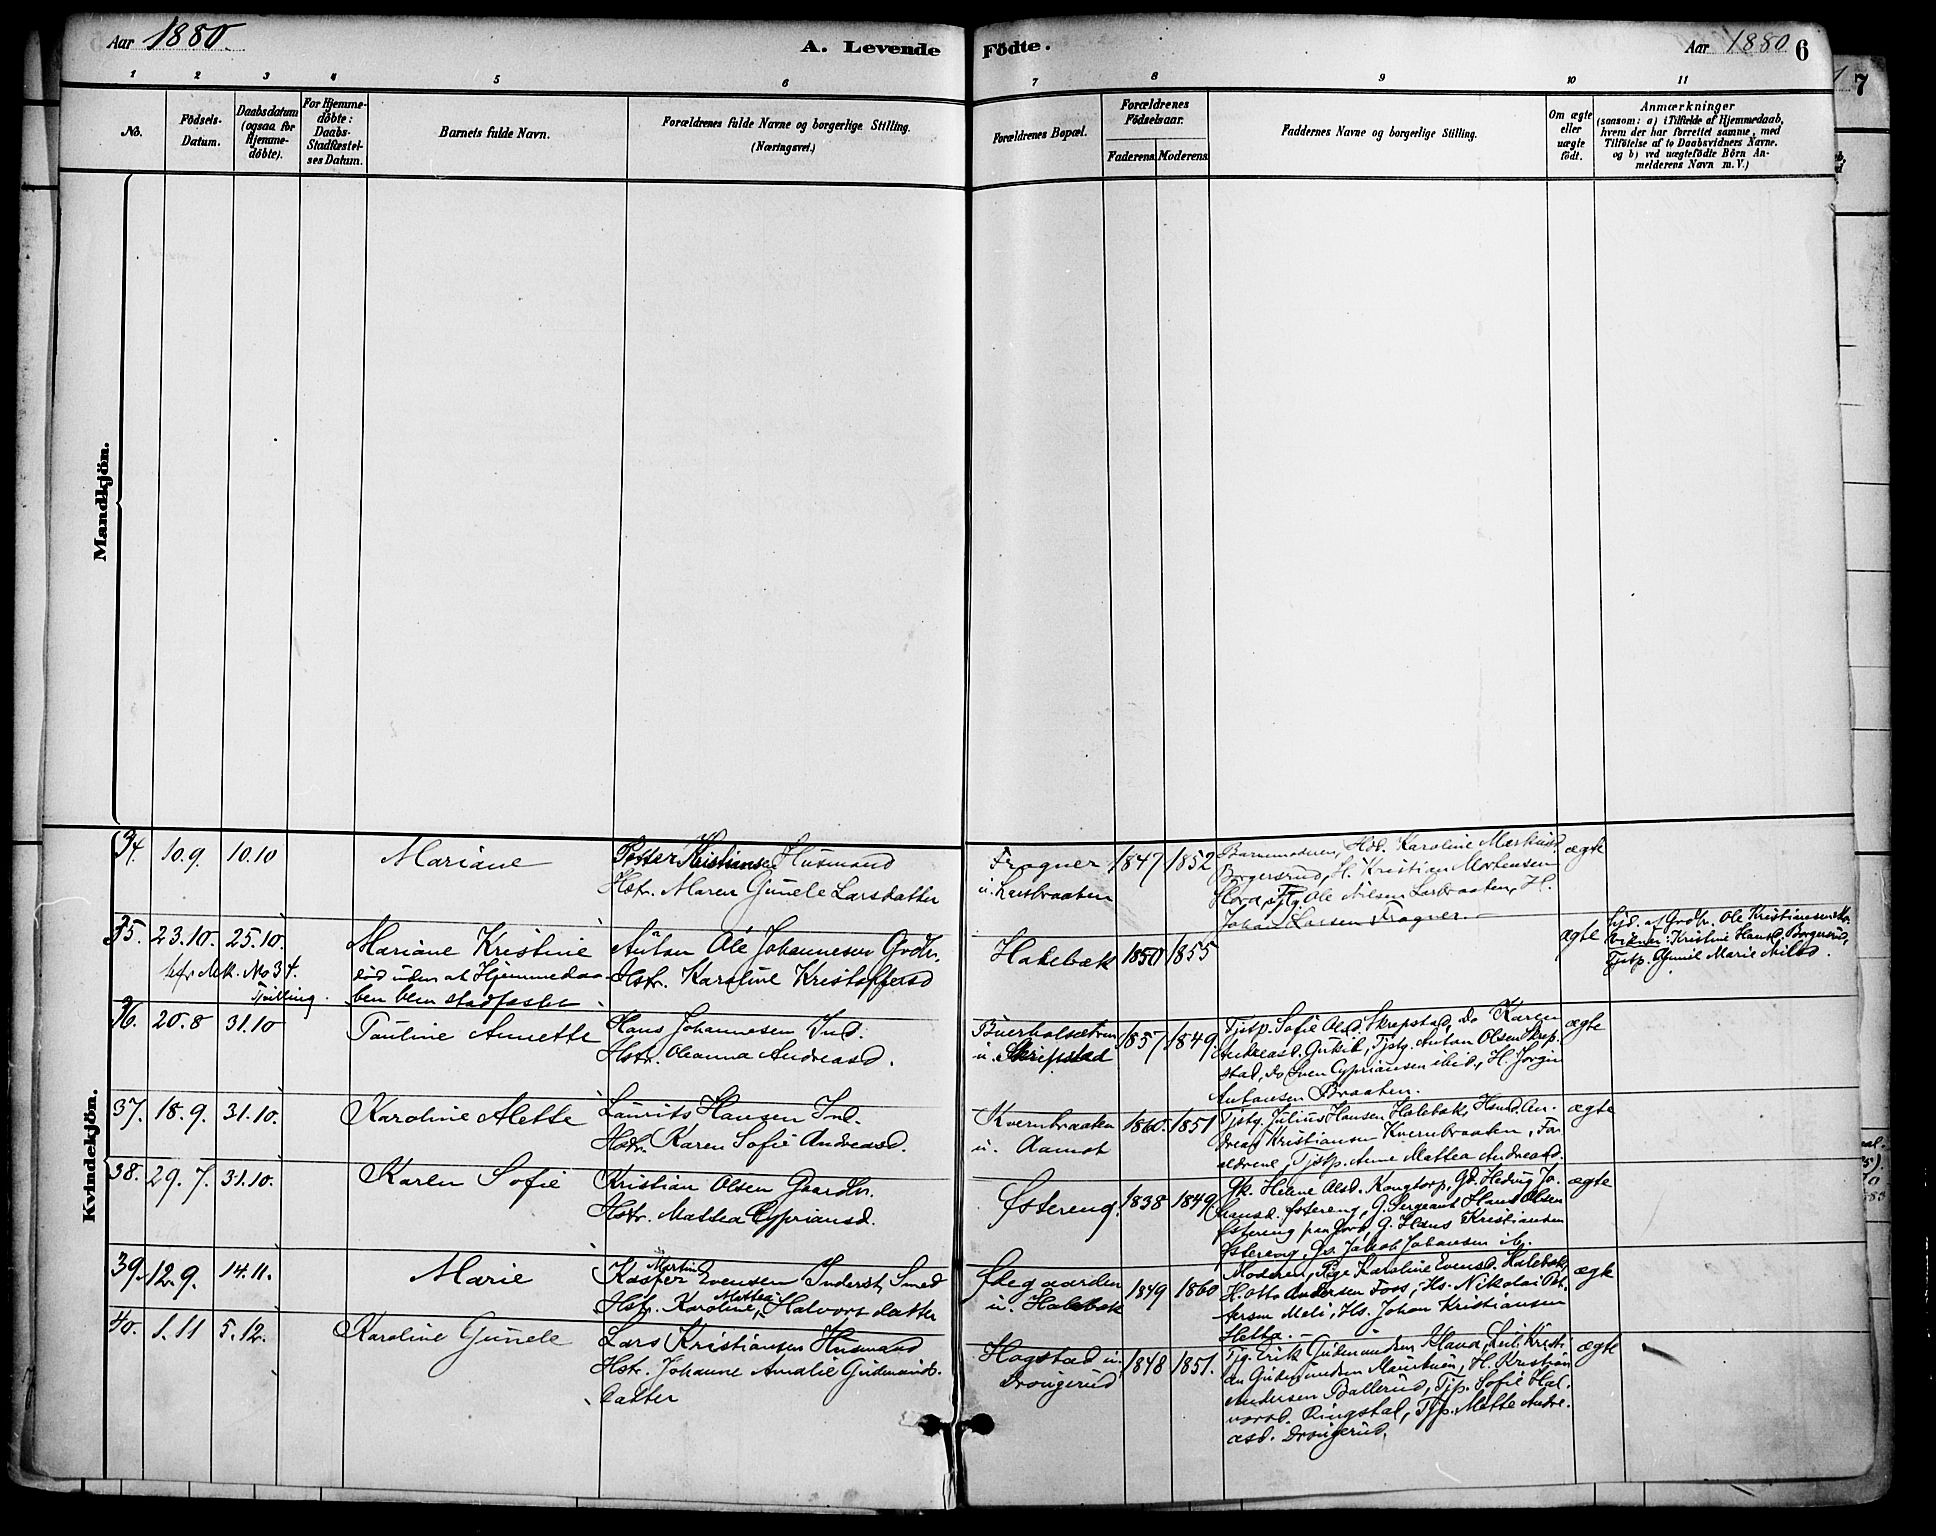 Aar 1880.
A. Levende Födte.
Aar 1880 6
7
1 2 3 4 5 6 7 8 9 10 11
No.
Födsels-
Datum.
Daabsdatum
(ogsaa for
Hjemme-
döbte).
For Hjemme-
döbte:
Daabs-
Stadfæstel-
ses Datum.
Barnets fulde Navn.
Forældrenes fulde Navne og borgerlige Stilling.
(Næringsvei.)
Forældrenes Bopæl.
Forældrenes
Födselsaar.
Faderens. Moderens.
Faddernes Navne og borgerlige Stilling.
Om ægte
eller
uægte
födt.
Anmærkninger
(saasom: a) i Tilfælde af Hjemmedaab,
hvem der har forrettet samme, med
Tilföielse af to Daabsvidners Navne.
og b) ved uægtefödte Börn An-
melderens Navn m. V.)
Mandkjön.
Kvindekjön.
34. 10.9 10.10 Mariane
Petter Kristiansen Husmand
Hstr. Maren Gunele Larsdatter
Frogner
u. Larsbraaten
1847 1852
Barnemoderen, Hd. Karoline Markusd.
Borgersrud, H. Kristian Mortensen
Ole Nilsen Larsbraaten, H.
Johan Larsen Frogner.
ægte
35. 23.10. 25.10.
No 34.
Tvilling.
Mariane Kristine
död uden at Hjemmedaa-
ben blev stadfæstet
Anton Ole Johannesen Grdbr.
Hstr. Karoline Kristoffersd
Holebæk 1850 1855
ægte
Hjd. af Grdbr. Ole Kristiansen
Vidner: Kristine Hansd. Borgersrud,
Tjstp. Gunil Marie Nilsd.
36. 20.8 31.10 Pauline Annette
Hans Johannesen Ind.
Hstr. Oleanna Andreasd.
u. Skrepstad
1857 1849.
Tjstp. Sofie Olsd. Skrepstad, Do Karen
Andreasd. Tjstg. Anton Olsen Skrep-
stad, Do Sven Cypriansen ibid., H. Jørgen
Antonsen Braaten.
ægte
37. 18.9. 31.10. Karoline Alette
Laurits Hansen Ind.
Hstr. Karen Sofie Andreasd.
Kvernbraaten
u. Aamot
1860. 1851
Tjstg. Julius Hansen Holebæk, Hsmd. An-
dreas Kristiansen Kvernbraaten, For-
ældrene, Tjstp. Anne Mattea Andreasd.
ægte
38. 29.7. 31.10. Karen Sofie
Kristian Olsen Gaardbr.
Hstr. Mattea Cypriansd.
Østereng. 1838 1849.
Gk. Helene Olsd. Kongtorp, Gd. Hedvig Jo-
hansd. Østereng, G. Sergeant Hans Olsen
Østereng paa Jord, G. Hans Kristiansen
Østereng, Gs. Jakob Johansen ib.
ægte
39. 12.9. 14.11. Marie
Kasper Martin Evensen Inderst, Smed
Hstr. Karoline Mattea Halvorsdatter
Ødegaarden
u. Holebæk
1849 1860
Moderen, Pige Karoline Evensd. Holebæk,
H. Otto Andersen Foss, Hs. Nikolai Pet-
tersen Meli, Hs. Johan Kristiansen
ægte
40. 1.11 5.12. Karoline Gunele
Lars Kristiansen Husmand
Hstr. Johanne Amalie Gudmunds-
datter
Hagstad u.
Drougerud
1848 1851.
Tjg. Erik Gudmundsen Kristi-
an Gudmundsen H. Kristian
Andersen Ballerud, Tjp. Sofie Hal-
vorsd. Ringstad, Tjp. Mette Andre-
asd. Drougerud.
ægte